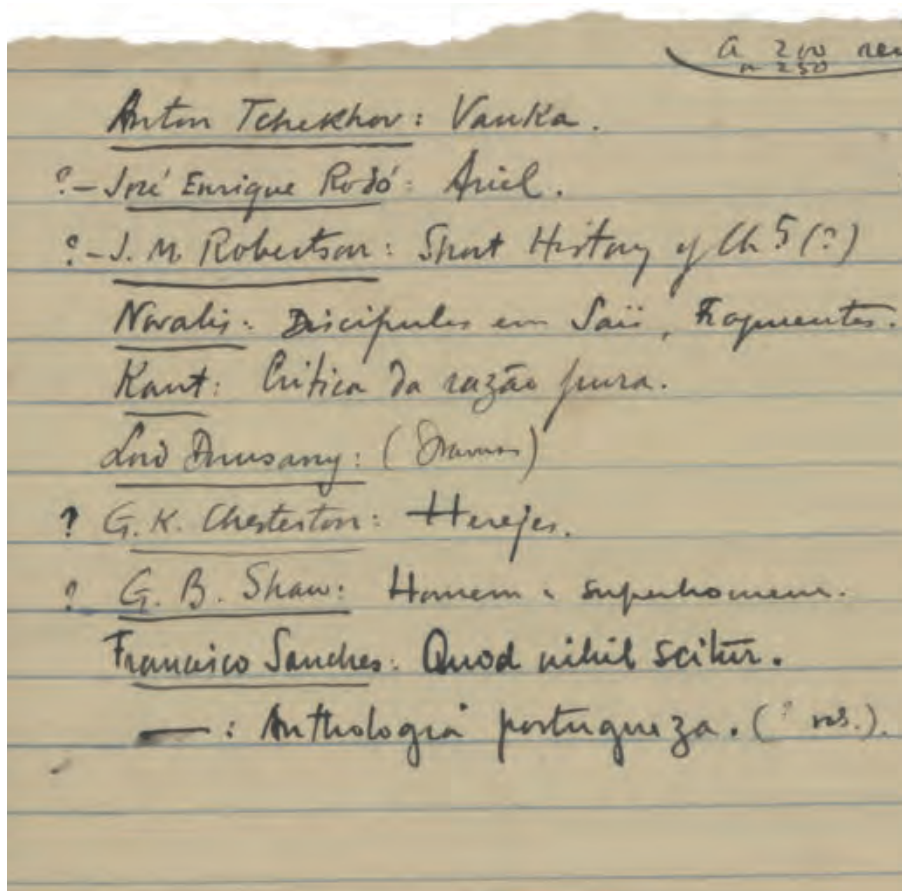 a 200
ou 250
Anton Tchekhov: Vanka.
?- José Enrique Rodó: Ariel.
?- J. M. Robertson: Short History of Ch 5 (?)
Novalis: Discipulos em Saïs, Fragmentos.
Kant: Critica da razão pura.
Lord Dunsany: (Dramas)
? G. K. Chesterton: Herejes.
? G. B. Shaw: Homem e superhomem.
Francisco Sanches: Quod nihil scitur.
—: Anthologia portugueza. (? vols.).